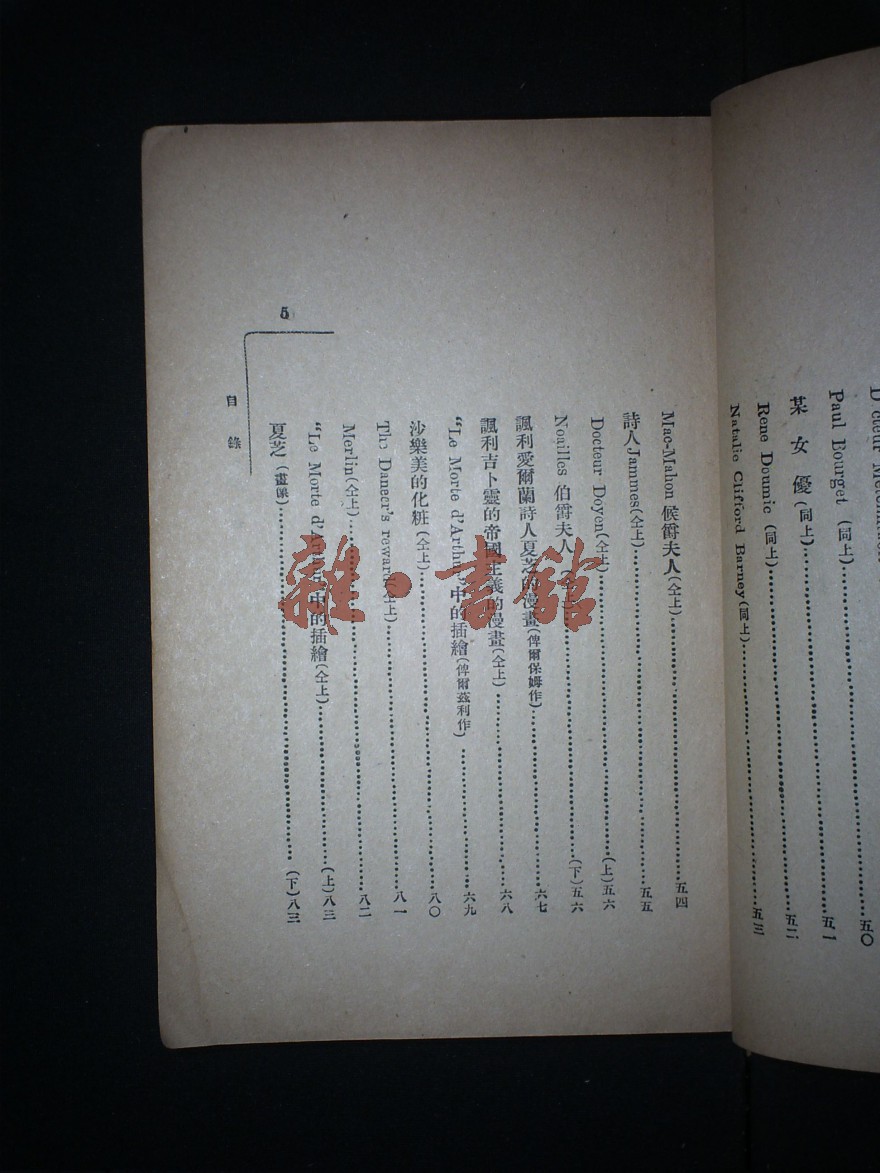 D'cteur
Paul Bourget (同上)……五一
某女優(同上)……五二
Rene Doumic (同上)……五二
Natalie Clifford Barney(同上)……五三
Mac-Mahon 候爵夫人(仝上)……五四
詩人Jammes(仝上)……五五
Docteur Doyen(仝上)……(上)五六
Noailles 伯爵夫人(仝上)……(下)五六
諷利愛爾蘭詩人夏芝的漫畫(俾爾保姆作)……六七
諷利吉卜靈的帝國主義的漫畫(仝上)……六八
"Le Morte d'Arthur"中的插繪(俾爾茲利作)……六九
沙樂美的化粧(仝上)……八〇
The Danecr's reward(仝上)……八一
Merlin(仝上)……八二
"Le Morte d'Arthur"中的插繪(仝上)……(上)八三
夏芝(畫像)……(下)八三
目錄
5
雜·書館